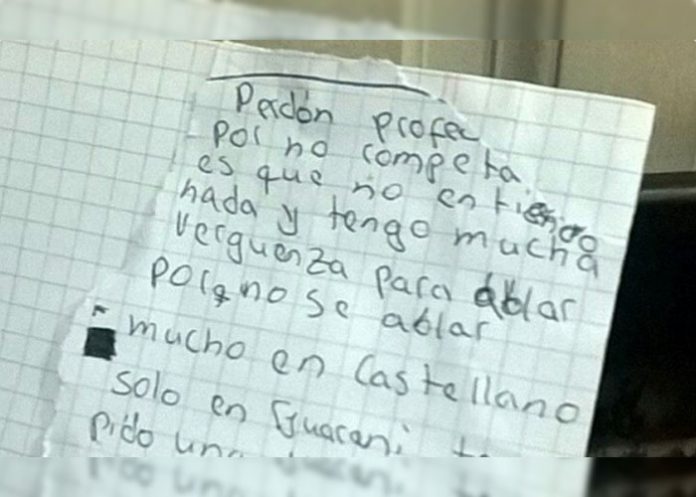 Perdón profe
por no competa
es que no entiendo
nada y tengo mucha
verguenza para ablar
porq no se ablar
mucho en Castellano
solo en Guarani
pido una